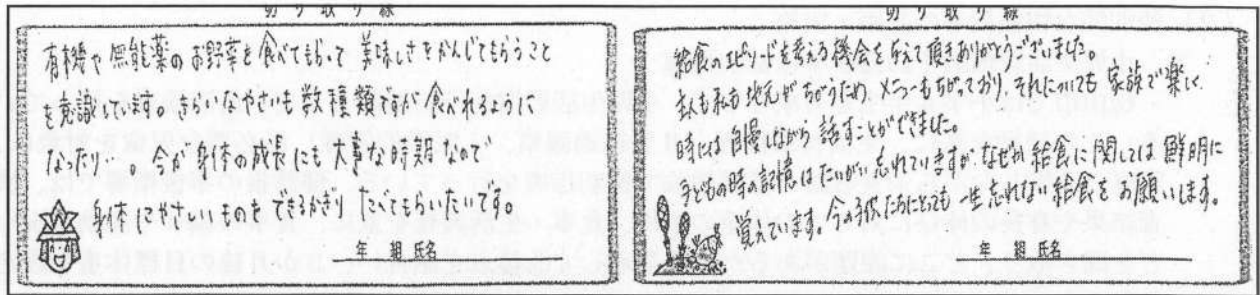 切り取り線
有機や無能薬のお野菜を食べてもらって 美味しさをかんじてもらうこと
を意識しています。きらいなやさいも数種類すが 食べれるように
なったり…。今が身体の成長にも大事な時期なので
身体にやさしいものを できるかぎり たべてもらいたいです。
年 組 氏名
切り取り線
給食のエピソードを考える機会を与えて頂きありがとうございました。
夫も私も地元がちがうため、メニューもちがっており、それについても 家族で楽しく
時には自慢しながら 話すことができました。
子どもの時の記憶はたいがい忘れていますが、なぜか給食に関しては 鮮明に
覚えています。今の子供たちにとっても 一生忘れない給食をお願いします。
年 組 氏名